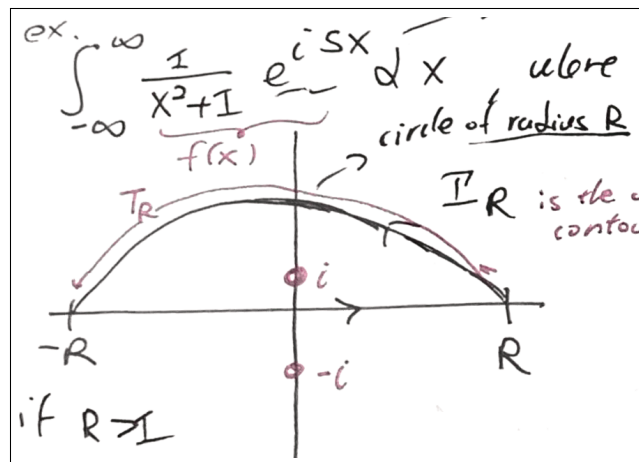 ex.
∫_{-∞}^{∞} 1/(x²+1) e^{i5x} dx where
f(x)
circle of radius R
T_R
Γ_R is the
i
-R R
-i
if R>1